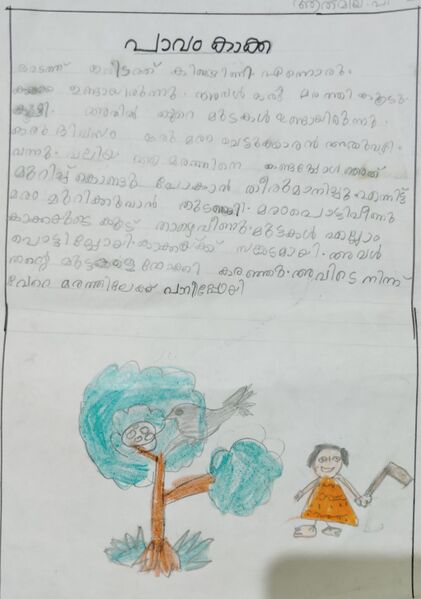 പാവം കാക്ക
ഒരിടത്ത് ഒരിടത്ത് എന്നൊരു
കാക്ക ഉണ്ടായിരുന്നു. അവൾ ഒരു മരത്തി
കൂട്ടി. അതിൽ കുറെ മുട്ടകൾ ഉണ്ടായിരുന്നു.
ഒരു ദിവസം ഒരു മരം വെട്ടുക്കാരൻ അതുവഴി
വന്നു. വലിയ മരത്തിനെ കണ്ടപ്പോൾ അത്
മുറിച്ച് കൊണ്ടു പോകാൻ തീരുമാനിച്ചു. എന്നിട്ട്
മരം മുറിക്കുവാൻ തുടങ്ങി. മരം പൊട്ടിവീണു
കാക്കയുടെ കൂട് താഴെ വീണു. മുട്ടകൾ എല്ലാം
പൊട്ടിപ്പോയി. കാക്കയ്ക്ക് സങ്കടമായി. അവൾ
തന്റെ മുട്ടകളെ നോക്കി കരഞ്ഞു. അവിടെ നിന്ന്
വേറെ മരത്തിലേക്ക് പറന്നുപോയി